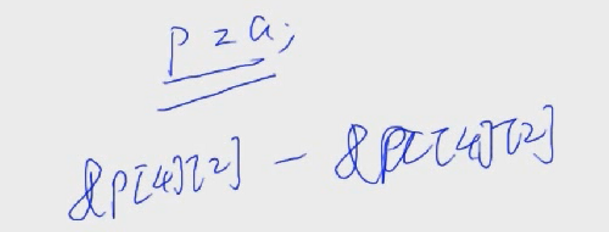 p = a;
&p[4][2] - &a[4][2]